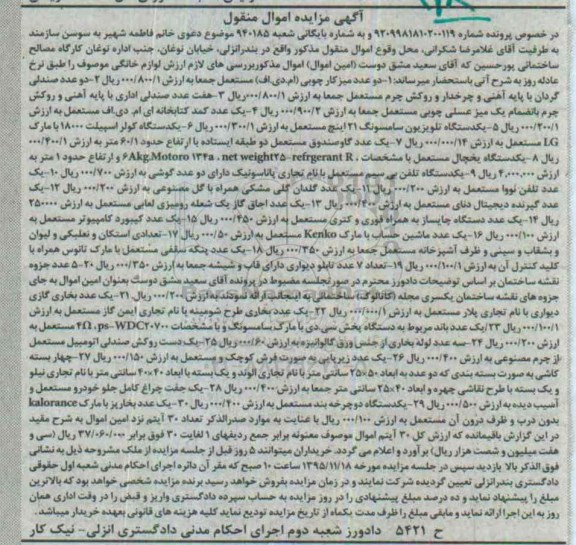 آگهی مزایده اموال منقول
در خصوص پرونده شماره ۹۲۰۹۹۸۱۸۱۰۲۰۰۱۱۹ و به شماره بایگانی شعبه ۹۴۰۱۸۵ موضوع دعوی خانم فاطمه شهیر به سوسن سازمند
به طرفیت آقای غلامرضا شکرانی، محل وقوع اموال منقول مذکور واقع در بندرانزلی، خیابان نوغان، جنب اداره نوغان کارگاه مصالح
ساختمانی پورحسین که آقای سعید مشق دوست (امین اموال) اموال مذکور بررسی های لازم ارزش لوازم خانگی موصوف را طبق نرخ
عادله روز به شرح آتی باستحضار میرساند: ۱-دو عدد میز کار چوبی (ام.دی.اف) مستعمل جمعا به ارزش ۸۰۰/۱/۰۰۰ ریال ۲-دو عدد صندلی
گردان با پایه آهنی و چرخدار و روکش چرم مستعمل جمعا به ارزش ۸۰۰/۱/۰۰۰ریال ۳-هفت عدد صندلی اداری با پایه آهنی و روکش
چرم بانضمام یک میز عسلی چوبی مستعمل جمعا به ارزش ۹۰۰/۲/۰۰۰ ریال ۴-یک عدد کمد کتابخانه ای ام. دی.اف مستعمل به ارزش
۲۰۰/۱/۰۰۰ ریال ۵-یکدستگاه تلویزیون سامسونگ ۲۱ اینچ مستعمل به ارزش ۳۰۰/۱/۰۰۰ ریال ۶-یکدستگاه کولر اسپیلت ۱۸۰۰۰ با مارک
LG مستعمل به ارزش ۰۰۰/۰۰۰/۱۴ ریال ۷-یک عدد گاوصندوق مستعمل دو طبقه ایستاده با ارتفاع حدود ۶۰/۱ متر به ارزش ۴۰۰/۱/۰۰۰
ریال ۸-یکدستگاه یخچال مستعمل با مشخصات ، ۶Akg.Motoro ۱۳۴a ، net weight۲۵-refrgerant R و ارتفاع حدود ۱ متر به
ارزش ۴،۰۰۰،۰۰۰ ریال ۹-یکدستگاه تلفن بی سیم مستعمل با نام تجاری پاناسونیک دارای دو عدد گوشی به ارزش ۷۰۰/۰۰۰ ریال ۱۰-یک
عدد تلفن نووا مستعمل به ارزش ۲۰۰/۰۰۰ ریال ۱۱-یک عدد گلدان گلی مشکی همراه با گل مصنوعی به ارزش ۲۰۰/۰۰۰ ریال ۱۲-یک
عدد گیرنده دیجیتال دنای مستعمل به ارزش ۴۰۰/۰۰۰ ریال ۱۳-یک عدد اجاق گاز یک شعله رومیزی لعابی مستعمل به ارزش ۲۵۰۰۰۰
ریال ۱۴-یک عدد دستگاه چایساز به همراه قوری و کتری مستعمل به ارزش ۴۵۰/۰۰۰ ریال ۱۵-یک عدد کیبورد کامپیوتر مستعمل به
ارزش ۱۰۰/۰۰۰ ریال ۱۶-یک عدد ماشین حساب با مارک Kenko مستعمل به ارزش ۵۰/۰۰۰ ریال ۱۷-تعدادی استکان و نعلبکی و لیوان
و بشقاب و سینی و ظرف آشپزخانه مستعمل جمعا به ارزش ۳۵۰/۰۰۰ ریال ۱۸-یک عدد پنکه سقفی مستعمل با مارک تانوس همراه با
کلید کنترل آن به ارزش ۱۰۰/۱/۰۰۰ ریال ۱۹-تعداد ۷ عدد تابلو دیواری دارای قاب و شیشه جمعا به ارزش ۳۵۰/۰۰۰ ریال ۲۰-۵ عدد جزوه
نقشه ساختمان بر اساس توضیحات دادورز محترم در صورتجلسه مضبوط در پرونده آقای سعید مشق دوست بعنوان امین اموال به جای
جزوه های نقشه ساختمان یکسری مجله (کاتالوگ) ساختمانی به اینجانب ارائه نمودند به ارزش ۲۰۰/۰۰۰ ریال. ۲۱-یک عدد بخاری گازی
دیواری با نام تجاری پلار مستعمل به ارزش ۰۰۰/۰۰۰/۱ ریال ۲۲-یک عدد بخاری طرح شومینه با نام تجاری ایمن گاز مستعمل به ارزش
۱۰۰/۱/۰۰۰ ریال ۲۳/یک عدد باند مربوط به دستگاه پخش سی دی با مارک سامسونگ و با مشخصات ۴Ω،ps-WDC۲۰۷۰۰ مستعمل به
ارزش ۲۰۰/۰۰۰ ریال ۲۴-سه عدد لوله بخاری از جنس ورق گالوانیزه به ارزش ۶۰/۰۰۰ ریال ۲۵-یک دست روکش صندلی اتومبیل مستعمل
از چرم مصنوعی به ارزش ۴۰۰/۰۰۰ ریال ۲۶-یک عدد زیرپایی به صورت فرش کوچک و مستعمل به ارزش ۱۵۰/۰۰۰ ریال ۲۷-چهار بسته
کاشی به صورت بسته بندی که دو عدد به ابعاد ۵۰×۲۵ سانتی متر با نام تجاری الوند و یک بسته با ابعاد ۴۰×۴۰ سانتی متر با نام تجاری نیلو
و یک بسته با طرح نقاشی چهره و ابعاد ۴۰×۲۵ سانتی متر جمعا به ارزش ۴۰۰/۰۰۰ ریال ۲۸-یک جفت چراغ کامل جلو خودرو مستعمل و
آسیب دیده به ارزش ۵۰۰/۰۰۰ ریال ۲۹-یکدستگاه دوچرخه بند مستعمل به ارزش ۴۰۰/۰۰۰ ریال ۳۰-یک عدد بخاریز با مارک kalorance
بدون درب و ظرف درون آن مستعمل به ارزش ۱۰۰/۰۰۰ ریال با عنایت به موارد صدرالذکر تعداد ۳۰ آیتم نزد امین اموال به شرح مقید
در این گزارش باقیمانده که ارزش کل ۳۰ آیتم اموال موصوف معنونه برابر جمع ردیفهای ۱ لغایت ۳۰ فوق برابر ۳۷/۰۶۰/۰۰۰ ریال (سی و
هفت میلیون و شصت هزار ریال) برآورد و اعلام می گردد. خریداران میتوانند ۵ روز قبل از جلسه مزایده از ملک مشروحه ذیل به نشانی
فوق الذکر بالا بازدید سپس در جلسه مزایده مورخه ۱۳۹۵/۱۱/۱۸ ساعت ۱۰ صبح که مقر آن دائره اجرای احکام مدنی شعبه اول حقوقی
دادگستری بندرانزلی تعیین گردیده شرکت نمایند و در زمان مزایده بفروش خواهد رسید برنده مزایده شخصی خواهد بود که بالاترین
مبلغ را پیشنهاد نماید و ده درصد مبلغ پیشنهادی را در روز مزایده به حساب سپرده دادگستری واریز و قبض را در وقت اداری همان
روز به این اجرا ارائه نماید و مابقی مبلغ را ظرف مدت یکماه از تاریخ مزایده تودیع نماید کلیه هزینه های قانونی بعهده خریدار میباشد.
ح ۵۴۲۱ دادورز شعبه دوم اجرای احکام مدنی دادگستری انزلی- نیک کار